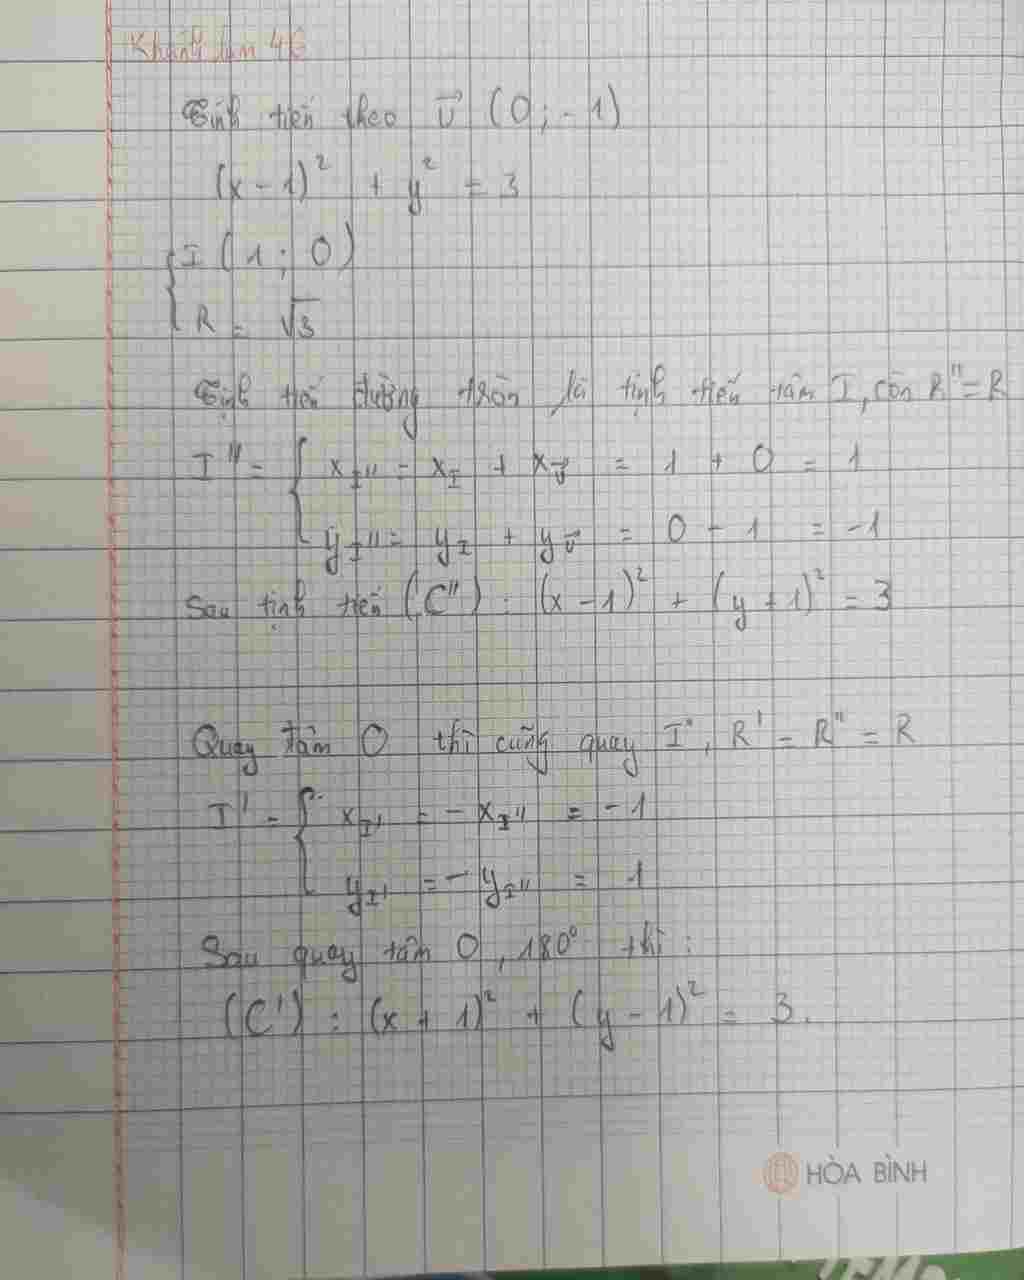 Khánh
Tịnh tiến theo v⃗ (0; -1)
(x - 1)² + y² = 3
{ I (1; 0)
R = √3
Tịnh tiến đường tròn là tịnh tiến tâm I, còn R" = R
I" = { x_I" = x_I + x_v⃗ = 1 + 0 = 1
y_I" = y_I + y_v⃗ = 0 - 1 = -1
Sau tịnh tiến (C") : (x - 1)² + (y + 1)² = 3
Quay tâm O thì cũng quay I", R' = R" = R
I' = { x_I' = - x_I" = - 1
y_I' = - y_I" = 1
Sau quay tâm O, 180° thì :
(C') : (x + 1)² + (y - 1)² = 3.
HÒA BÌNH